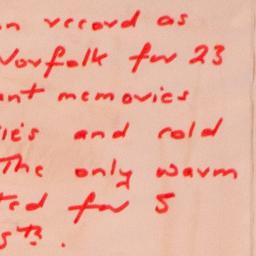 on record as
Norfolk for 23
ant memories
ies and cold
The only warm
ted for 5
5th.